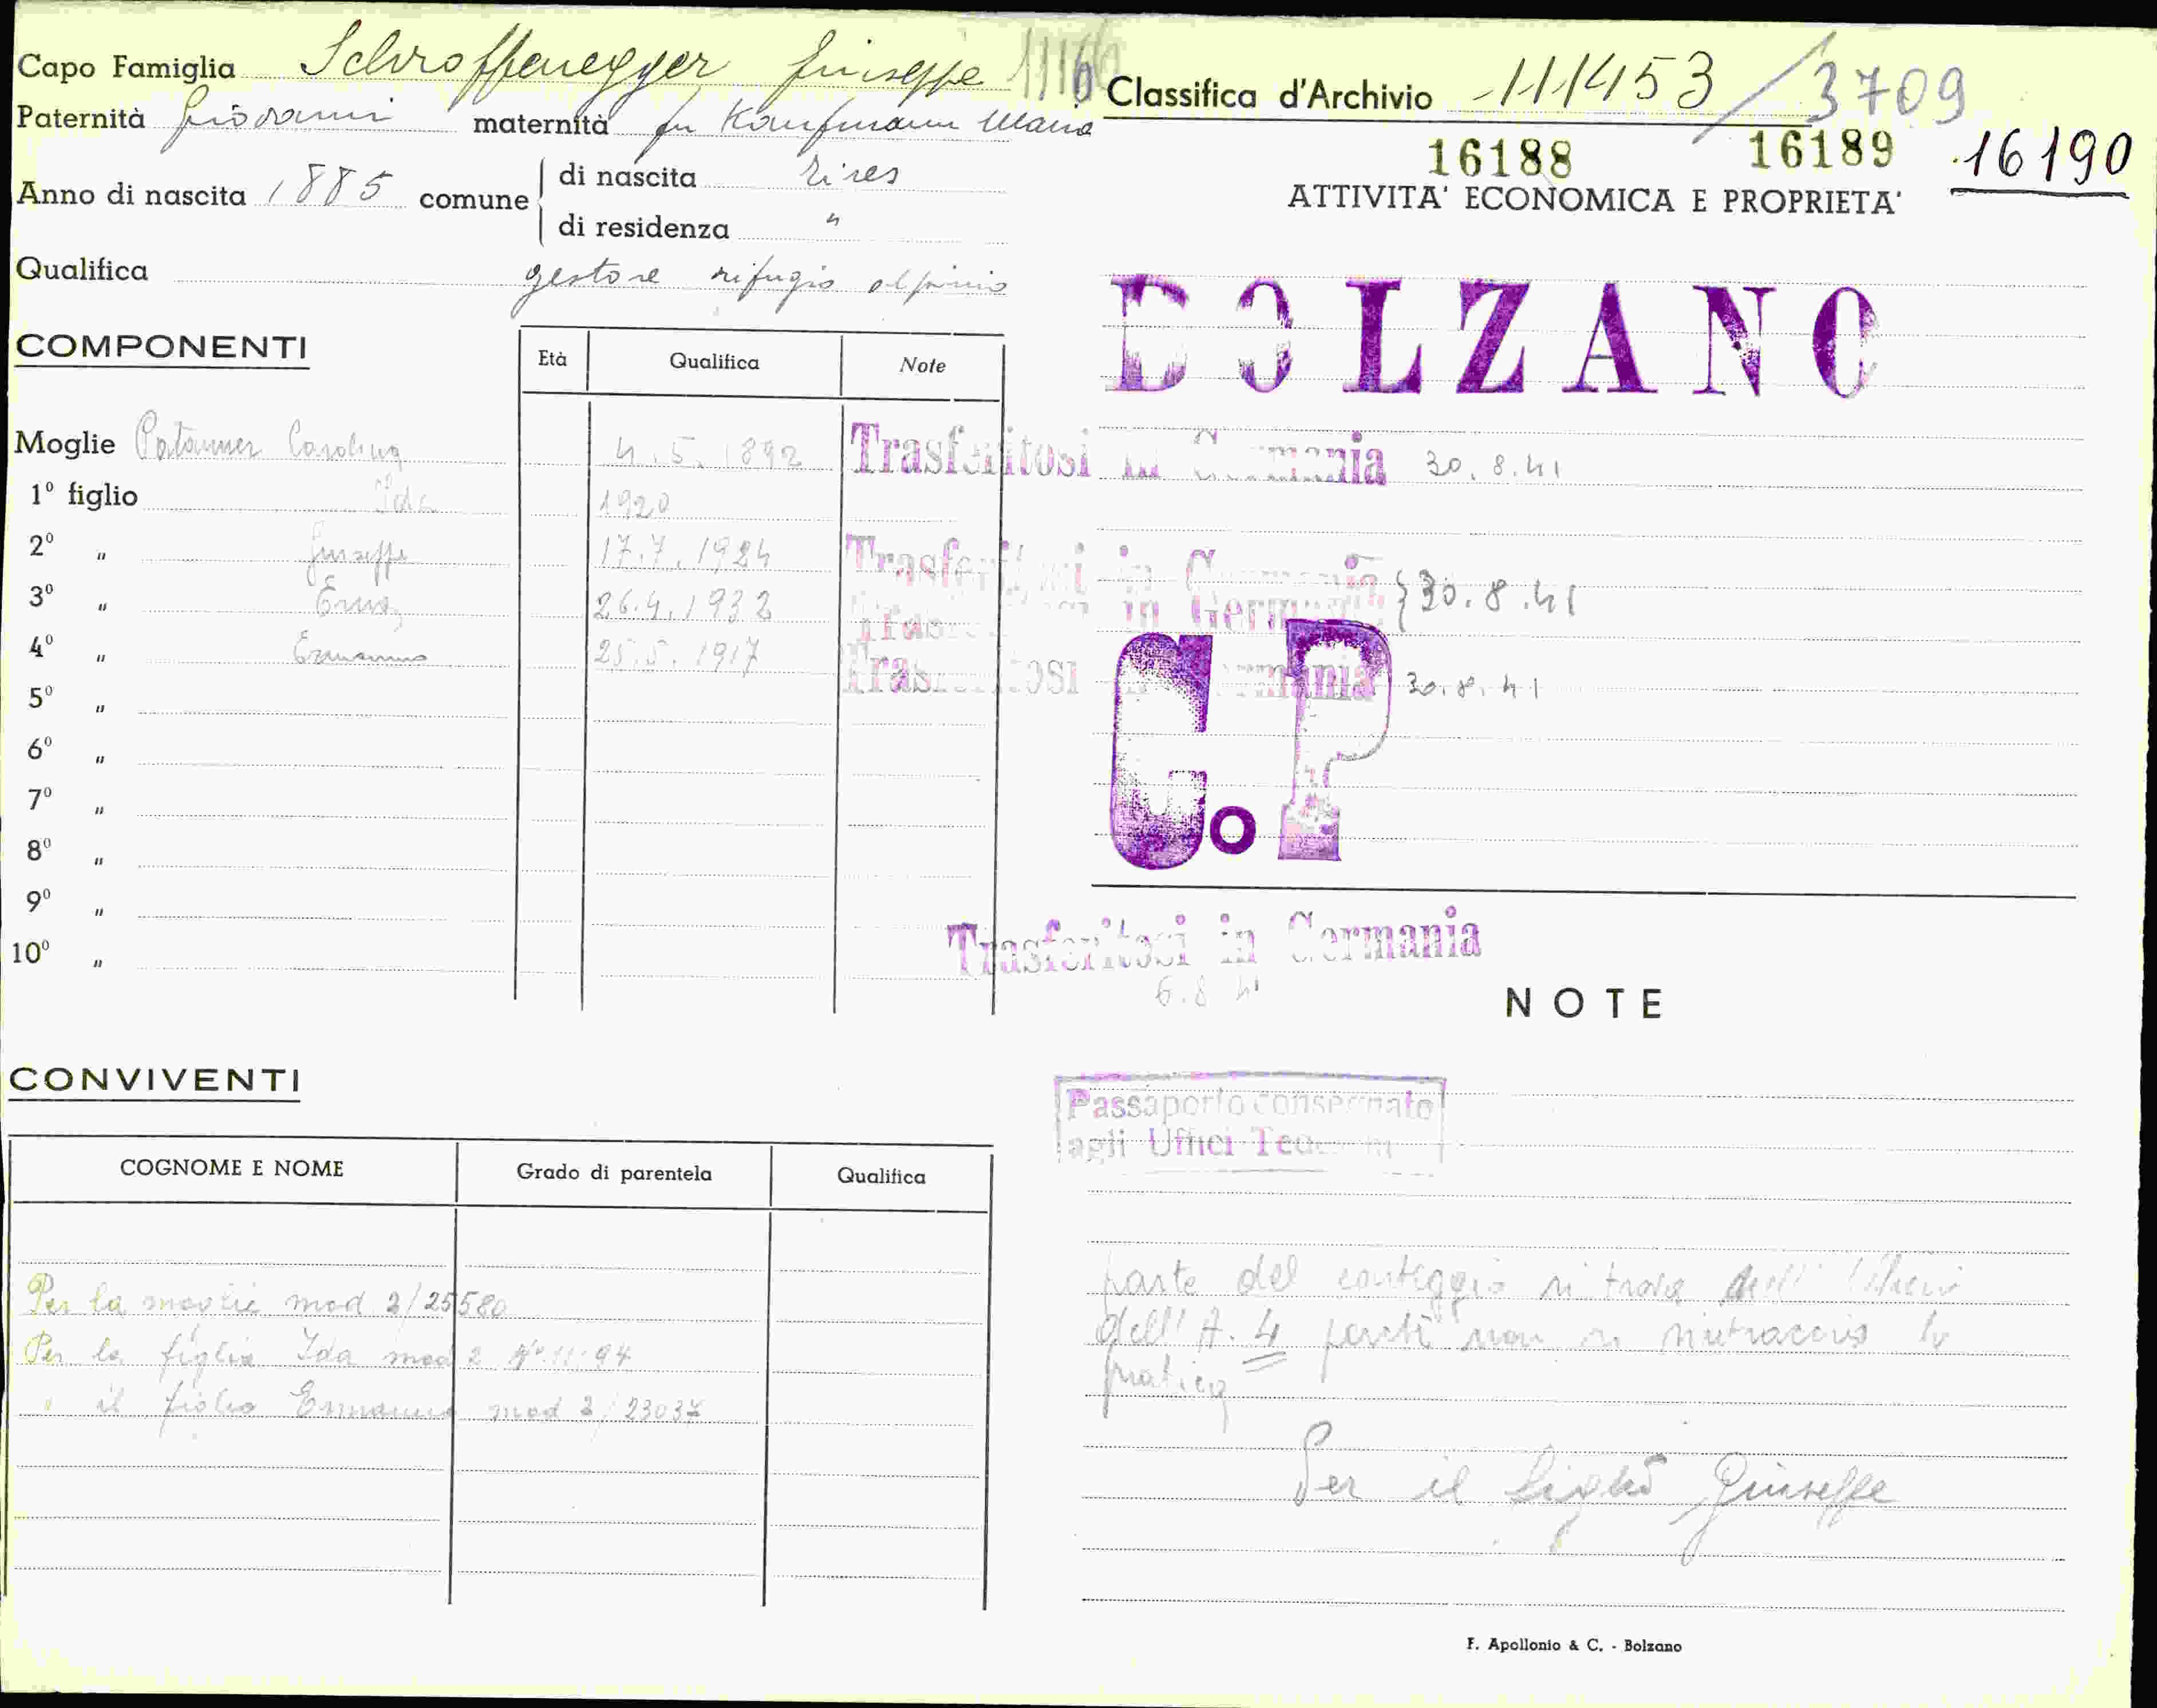 Capo Famiglia Schroffenegger Giuseppe
Classifica d'Archivio 111453/3709
Paternità Giovanni maternità fu Kaufmann Maria
16188 16189 16190
Anno di nascita 1885 comune
di nascita Tires
di residenza "
ATTIVITA' ECONOMICA E PROPRIETA'
Qualifica gestore rifugio alpino
BOLZANO
COMPONENTI
Età Qualifica Note
Moglie Patauner Carolina 4.5.1892 Trasferitosi in Germania 30.8.41
1º figlio Ida 1920
2º " Giuseppe 17.7.1924 Trasferitosi in Germania } 30.8.41
3º " Erna 26.4.1932 Trasferitosi in Germania
4º " Ermanno 25.5.1917 Trasferitosi in Germania 30.8.41
5º "
6º "
7º "
8º "
9º "
10º "
C.P
Trasferitosi in Germania
6.8.41
NOTE
CONVIVENTI
Passaporto consegnato
agli Uffici Tedeschi
COGNOME E NOME Grado di parentela Qualifica
Per la moglie mod 2/25580
Per la figlia Ida mod 2
" il figlio Ermanno mod 2/23037
parte del conteggio si trova
dell'A.4 perchè non si rintraccia la
pratica
Per il figlio Giuseppe
F. Apollonio & C. - Bolzano